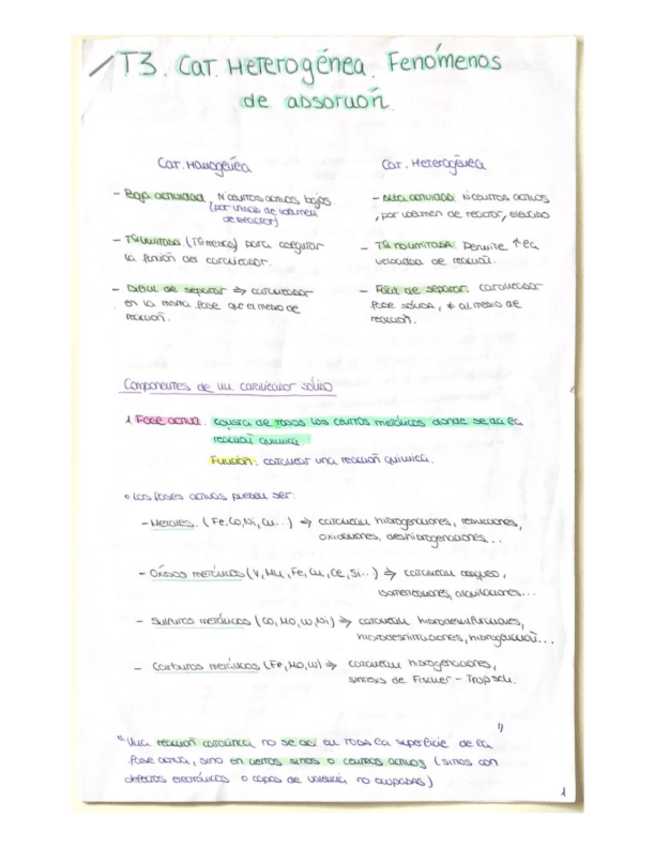 T3. Cat. Heterogénea. Fenómenos
de absorción.
Cat. Homogénea
- Baja actividad. Nº centros activos bajos
(por unidad de volumen
de reactor)
- Tª limitada (Tª menor) para asegurar
la función del catalizador.
- Difícil de separar ⇒ catalizador
en la misma fase que el medio de
reacción.
Cat. Heterogénea
- Alta actividad. Nº centros activos
, por volumen de reactor, elevado
- Tª no limitada. Permite ↑ la
velocidad de reacción.
- Fácil de separar. catalizador
fase sólida, ≠ al medio de
reacción.
Componentes de un catalizador sólido
1. Fase activa. Consta de todos los centros metálicos donde se da la
reacción química.
Función: catalizar una reacción química.
• Las fases activas pueden ser:
- Metales. (Fe, Co, Ni, Cu...) ⇒ catalizan hidrogenaciones, reducciones,
oxidaciones, deshidrogenaciones...
- Óxidos metálicos (V, Mn, Fe, Cu, Ce, Si...) ⇒ catalizan craqueo,
isomerizaciones, alquilaciones...
- Sulfuros metálicos (Co, Mo, W, Ni) ⇒ catalizan hidrodesulfuraciones,
hidrodesnitrificaciones, hidrogenación...
- Carburos metálicos (Fe, Mo, W) ⇒ catalizan hidrogenaciones,
síntesis de Fischer - Tropsch.
"Una reacción catalítica no se da en TODA la superficie de la
fase activa, sino en ciertos sitios o centros activos (sitios con
defectos electrónicos o capas de valencia no ocupadas)"
1